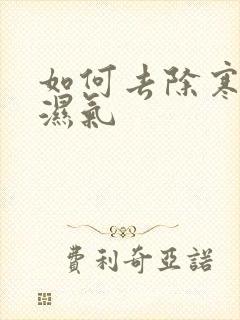 如何去除寒
濕氣
費利奇亞諾